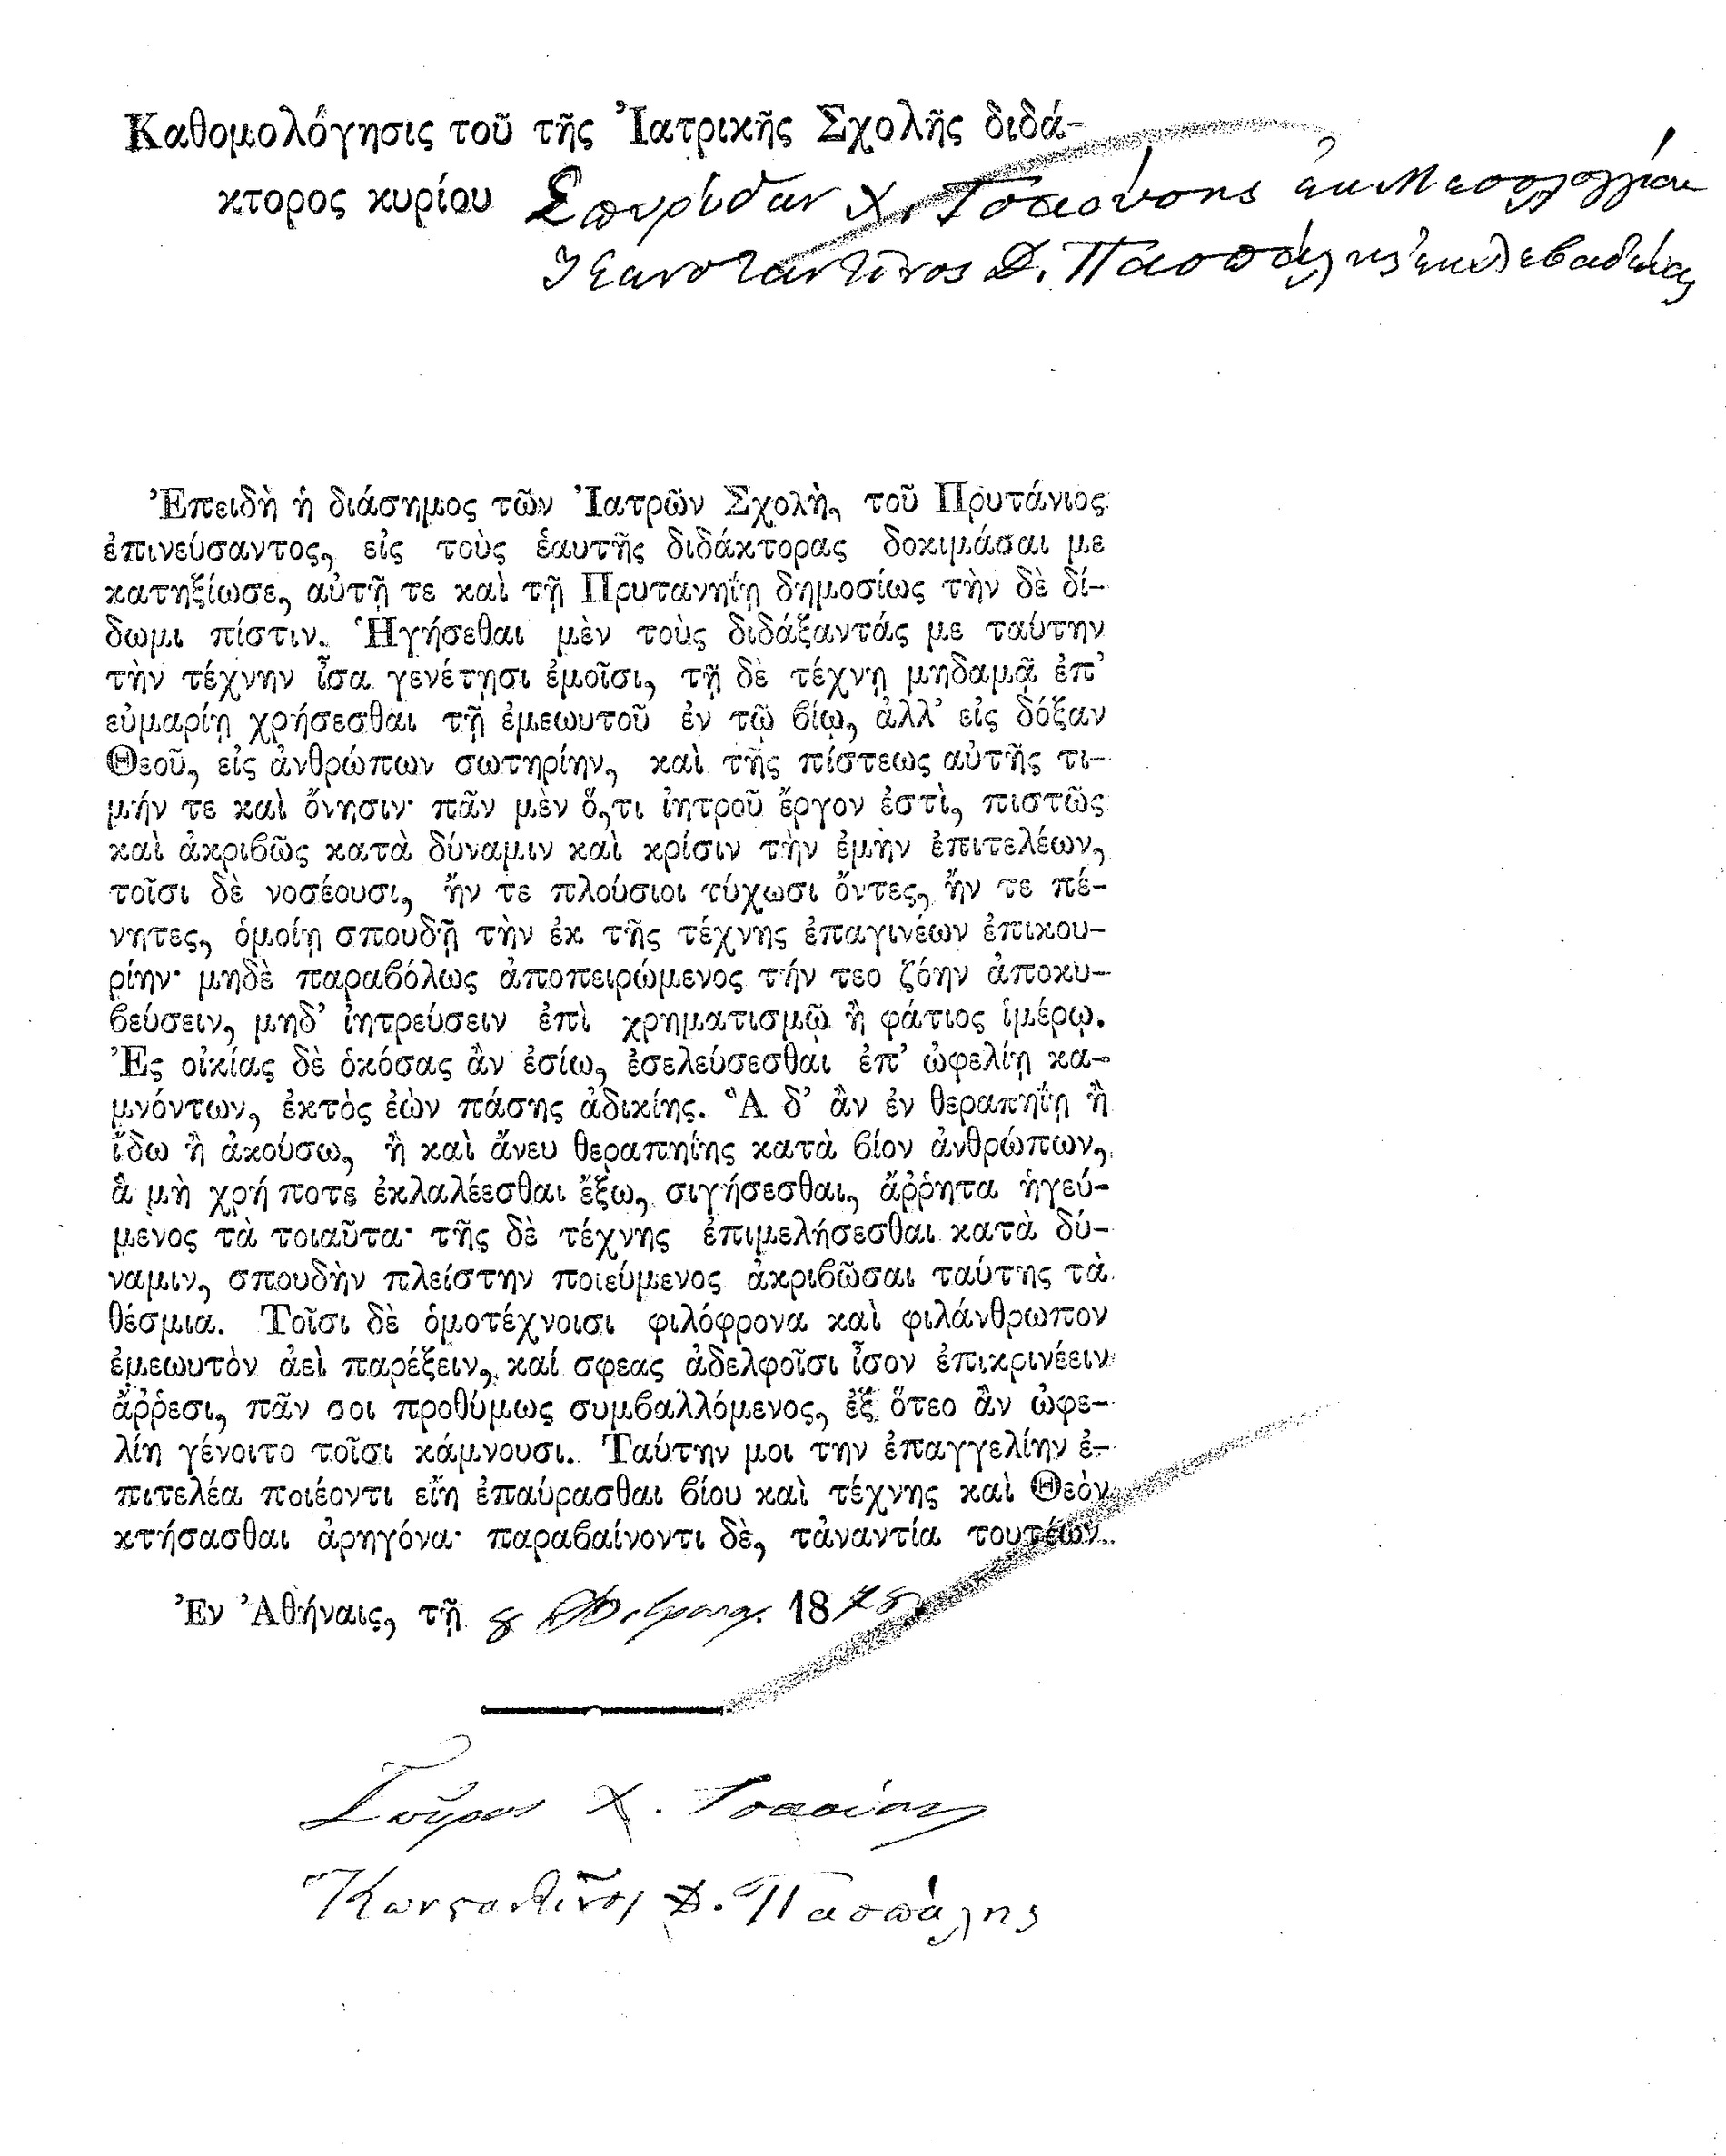 Καθομολόγησις τοῦ τῆς Ἰατρικῆς Σχολῆς διδά-
κτορος κυρίου Σπυρίδων Χ. Τσαούσης ἐκ Μεσολογγίου
Κωνσταντῖνος Δ. Πασπάλης ἐκ Λεβαδείας
Ἐπειδὴ ἡ διάσημος τῶν Ἰατρῶν Σχολὴ, τοῦ Πρυτάνιος
ἐπινεύσαντος, εἰς τοὺς ἑαυτῆς διδάκτορας δοκιμάσαι με
κατηξίωσε, αὐτῇ τε καὶ τῇ Πρυτανηΐῃ δημοσίως τὴν δὲ δί-
δωμι πίστιν. Ἡγήσεθαι μὲν τοὺς διδάξαντάς με ταύτην
τὴν τέχνην ἶσα γενέτῃσι ἐμοῖσι, τῇ δὲ τέχνῃ μηδαμᾷ ἐπ’
εὐμαρίῃ χρήσεσθαι τῇ ἐμεωυτοῦ ἐν τῷ βίῳ, ἀλλ’ εἰς δόξαν
Θεοῦ, εἰς ἀνθρώπων σωτηρίην, καὶ τῆς πίστεως αὐτῆς τι-
μήν τε καὶ ὄνησιν· πᾶν μὲν ὅ,τι ἰητροῦ ἔργον ἐστὶ, πιστῶς
καὶ ἀκριβῶς κατὰ δύναμιν καὶ κρίσιν τὴν ἐμὴν ἐπιτελέων,
τοῖσι δὲ νοσέουσι, ἤν τε πλούσιοι τύχωσι ὄντες, ἤν τε πέ-
νητες, ὁμοίῃ σπουδῇ τὴν ἐκ τῆς τέχνης ἐπαγινέων ἐπικου-
ρίην· μηδὲ παραβόλως ἀποπειρώμενος τήν τεο ζόην ἀποκυ-
βεύσειν, μηδ’ ἰητρεύσειν ἐπὶ χρηματισμῷ ἢ φάτιος ἱμέρῳ.
Ἐς οἰκίας δὲ ὁκόσας ἂν ἐσίω, ἐσελεύσεσθαι ἐπ’ ὠφελίῃ κα-
μνόντων, ἐκτὸς ἐὼν πάσης ἀδικίης. Ἃ δ’ ἂν ἐν θεραπηΐῃ ἢ
ἴδω ἢ ἀκούσω, ἢ καὶ ἄνευ θεραπηΐης κατὰ βίον ἀνθρώπων,
ἃ μὴ χρή ποτε ἐκλαλέεσθαι ἔξω, σιγήσεσθαι, ἄῤῥητα ἡγεύ-
μενος τὰ τοιαῦτα· τῆς δὲ τέχνης ἐπιμελήσεσθαι κατὰ δύ-
ναμιν, σπουδὴν πλείστην ποιεύμενος ἀκριβῶσαι ταύτης τὰ
θέσμια. Τοῖσι δὲ ὁμοτέχνοισι φιλόφρονα καὶ φιλάνθρωπον
ἐμεωυτὸν ἀεὶ παρέξειν, καί σφεας ἀδελφοῖσι ἶσον ἐπικρινέειν
ἄῤῥεσι, πᾶν σοι προθύμως συμβαλλόμενος, ἐξ ὅτεο ἂν ὠφε-
λίη γένοιτο τοῖσι κάμνουσι. Ταύτην μοι την ἐπαγγελίην ἐ-
πιτελέα ποιέοντι εἴη ἐπαύρασθαι βίου καὶ τέχνης καὶ Θεὸν
κτήσασθαι ἀρηγόνα· παραβαίνοντι δὲ, τἀναντία τουτέων.
Ἐν Ἀθήναις, τῇ 8 1878
Σπῦρος Χ. Τσαούσης
Κωνσταντῖνος Δ. Πασπάλης